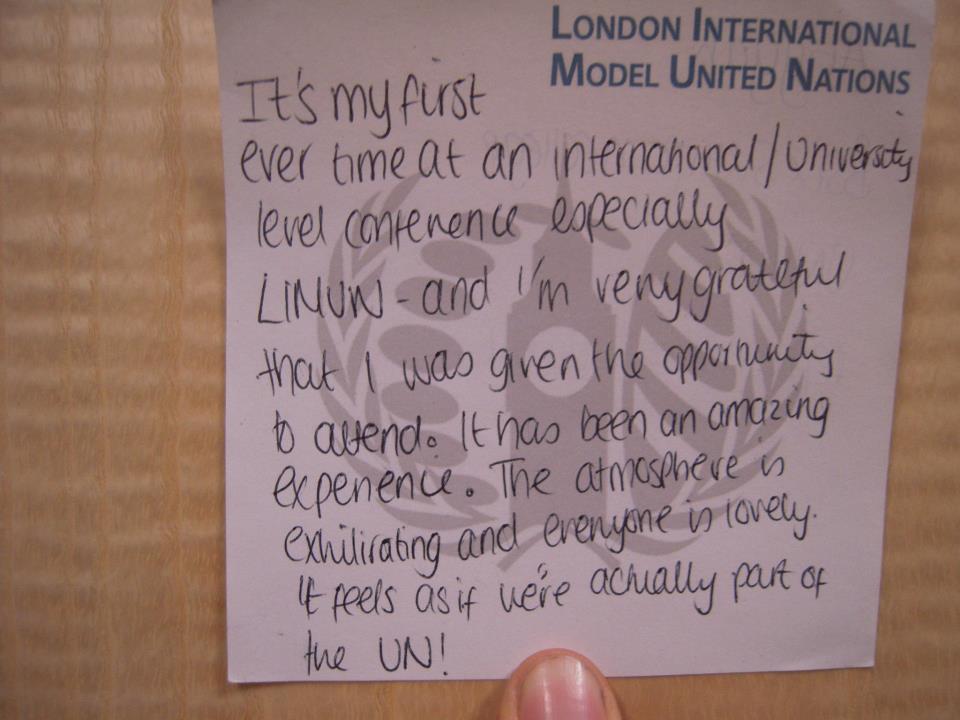 LONDON INTERNATIONAL
MODEL UNITED NATIONS
It's my first
ever time at an international/University
level conference especially
LIMUN - and I'm very grateful
that I was given the opportunity
to attend. It has been an amazing
experience. The atmosphere is
exhilirating and everyone is lovely.
It feels as if we're actually part of
the UN!